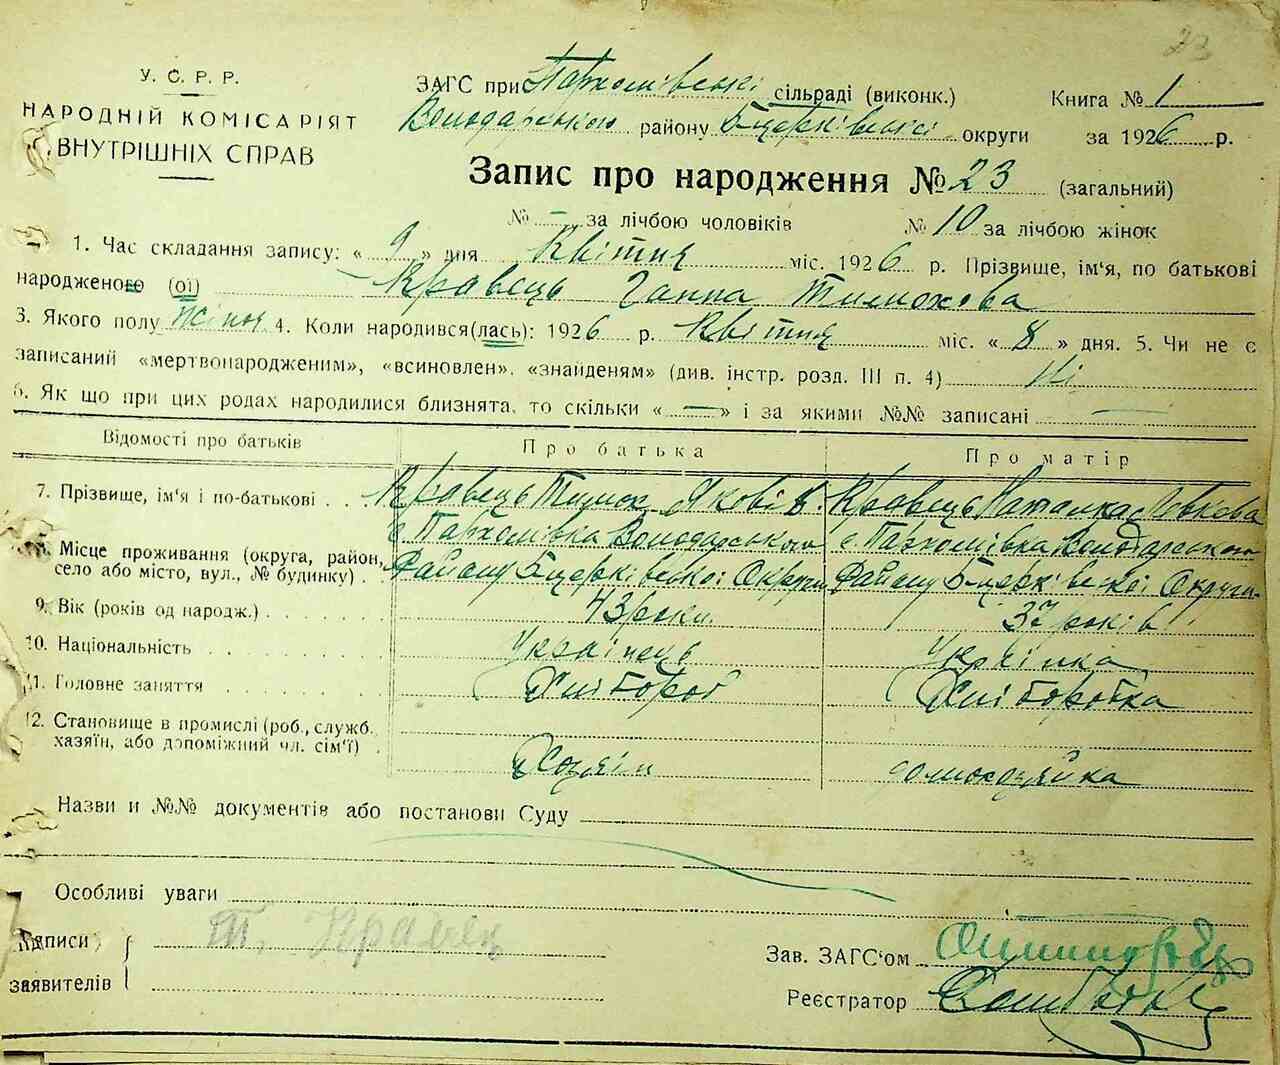 23
У. С. Р. Р.
НАРОДНІЙ КОМІСАРІЯТ
ВНУТРІШНІХ СПРАВ
ЗАГС при Пархомівській сільраді (виконк.)
Книга № 1
Володарського району Б-церківської округи
за 1926 р.
Запис про народження № 23 (загальний)
№ — за лічбою чоловіків № 10 за лічбою жінок
1. Час складання запису: « 9 » дня Квітня міс. 1926 р. Прізвище, ім'я, по батькові
народженого (ої) Кравець Ганна Тимохова
3. Якого полу жіноч 4. Коли народився(лась): 1926 р. Квітня міс. « 8 » дня. 5. Чи не є
записаний «мертвонародженим», «всиновлен», «знайденям» (див. інстр. розд. III п. 4) Ні
6. Як що при цих родах народилися близнята, то скільки « — » і за якими №№ записані —
Відомості про батьків
Про батька
Про матір
7. Прізвище, ім'я і по-батькові . . Кравець Тимох Яковів. Кравець Наталка Левкова
с. Пархомівка Володарського с. Пархомівка Володарського
8. Місце проживання (округа, район,
село або місто, вул., № будинку) . Району Б-церківської Округи Району Б-церківської Округи
9. Вік (років од народж.) . . . . . . . 43 роки. 37 років
10. Національність . . . . . . . . . . Українець Українка
11. Головне заняття . . . . . . . . . Хлібороб Хліборобка
12. Становище в промислі (роб., служб.
хазяїн, або допоміжний чл. сім'ї) . Хазяїн домохазяйка
Назви и №№ документів або постанови Суду
Особливі уваги
Підписи
заявителів
Т. Кравец
Зав. ЗАГС'ом
Реєстратор